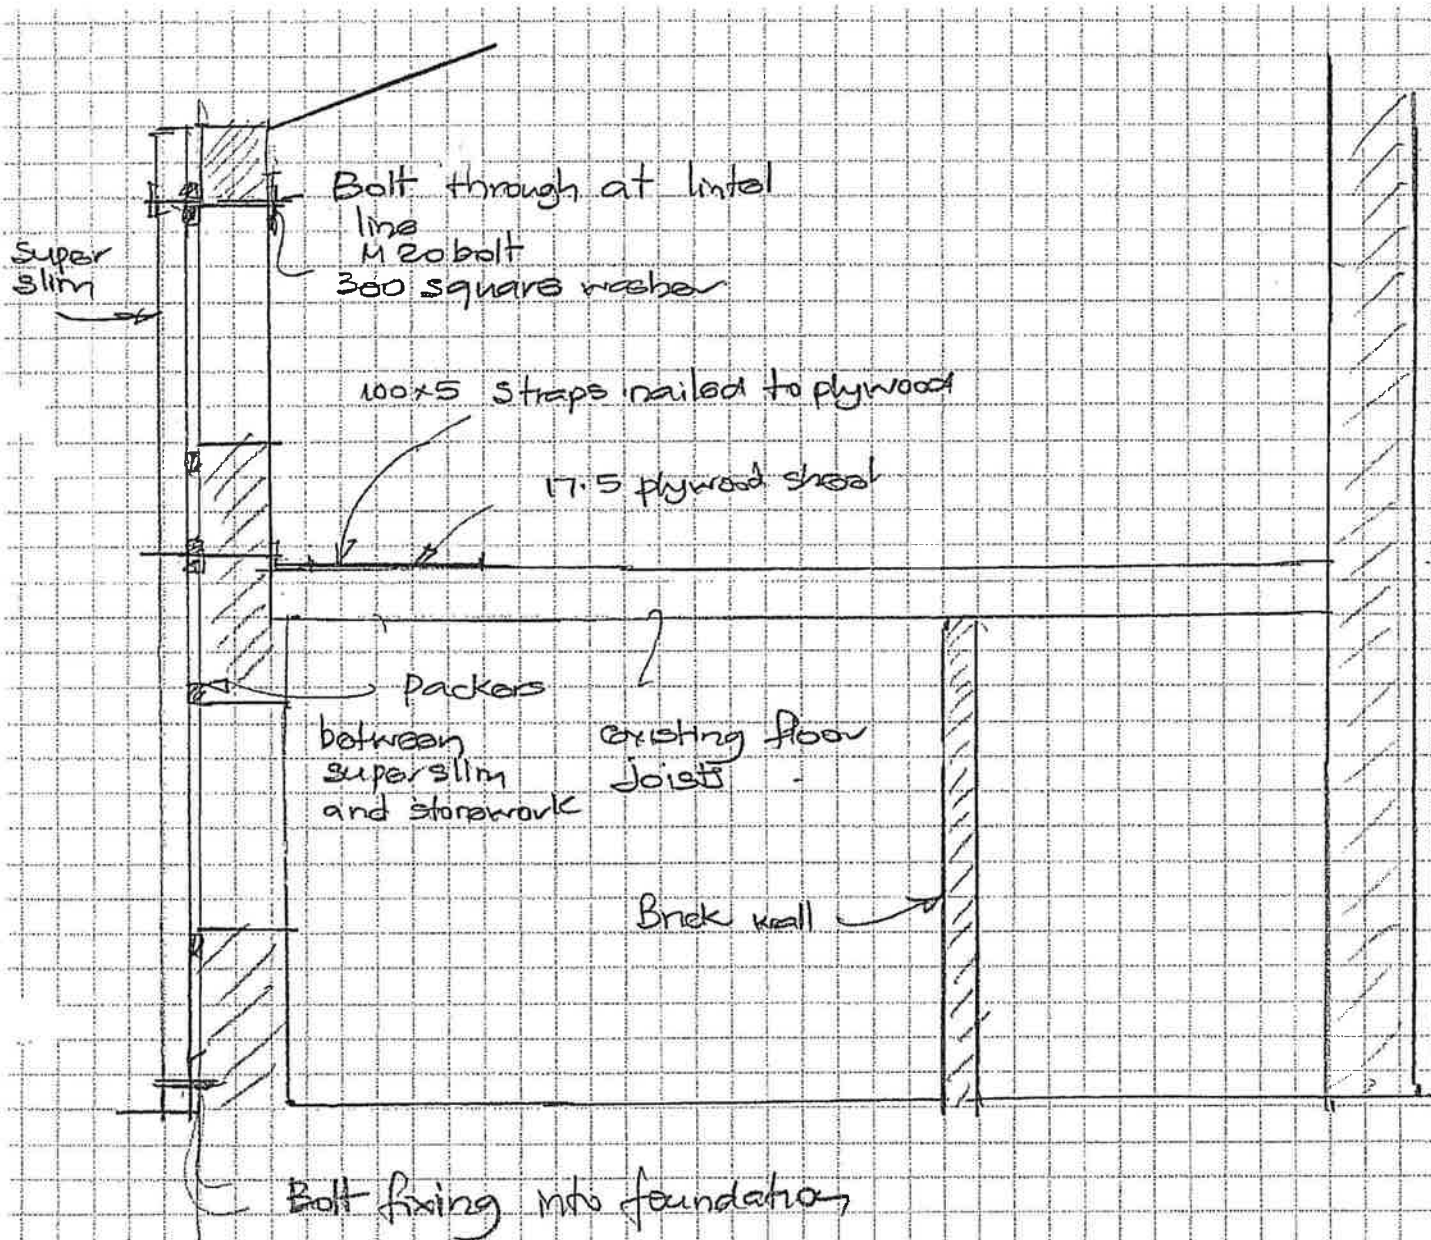 Bolt through at lintel
line
M20 bolt
300 square washer
super
slim
100x5 straps nailed to plywood
17.5 plywood sheet
Packers
between
superslim
and stonework
existing floor
Joists
Brick wall
Bolt fixing into foundation